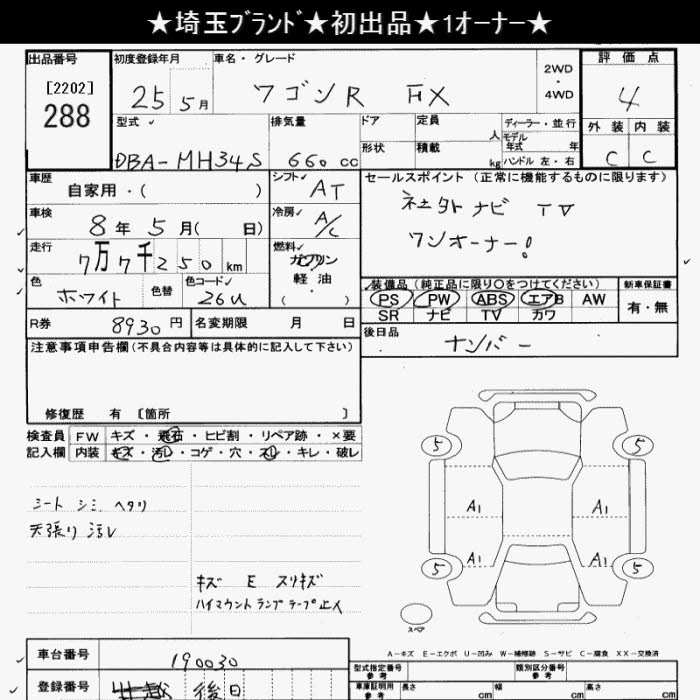 ★埼玉ﾌﾞﾗﾝﾄﾞ★初出品★1オーナー★
出品番号
[2202]
288
初度登録年月
25 5月
車名・グレード
ワゴンR FX
2WD
・
4WD
評価点
4
型式
DBA-MH34S
排気量
660 cc
ドア
定員
人
ディーラー・並行
形状
積載
kg
モデル
年式 年
ハンドル 左・右
外装
内装
C
C
車歴
自家用・( )
シフト
AT
車検
8年 5月( 日)
冷房
A/C
走行
7万7千250 km
燃料
ガソリン
軽油
( ・ )
色
ホワイト
色替
色コード
26U
R券
8930円
名変期限 月 日
セールスポイント (正常に機能するものに限ります)
社外ナビ TV
ワンオーナー!
装備品 (純正品に限り○をつけてください)
PS PW ABS エアB AW
SR ナビ TV カワ
新車保証書
有・無
後日品
ナンバー
注意事項申告欄(不具合内容等は具体的に記入して下さい)
修復歴 有 [箇所 ]
検査員
記入欄
FW キズ・飛石・ヒビ割・リペア跡・×要
内装 キズ・汚レ・コゲ・穴・スレ・キレ・破レ
シート シミ ヘタリ
天張り 汚レ
キズ E スリキズ
ハイマウントランプテープ止メ
5 5
A1 A1
A1 A1
5 5
スペア
A-キズ E-エクボ U-凹み W-補修跡 S-サビ C-腐食 XX-交換済
車台番号
190030
登録番号
後日
型式指定番号
参考
類別区分番号
参考
車庫証明用
参考
長さ cm
幅 cm
高さ cm